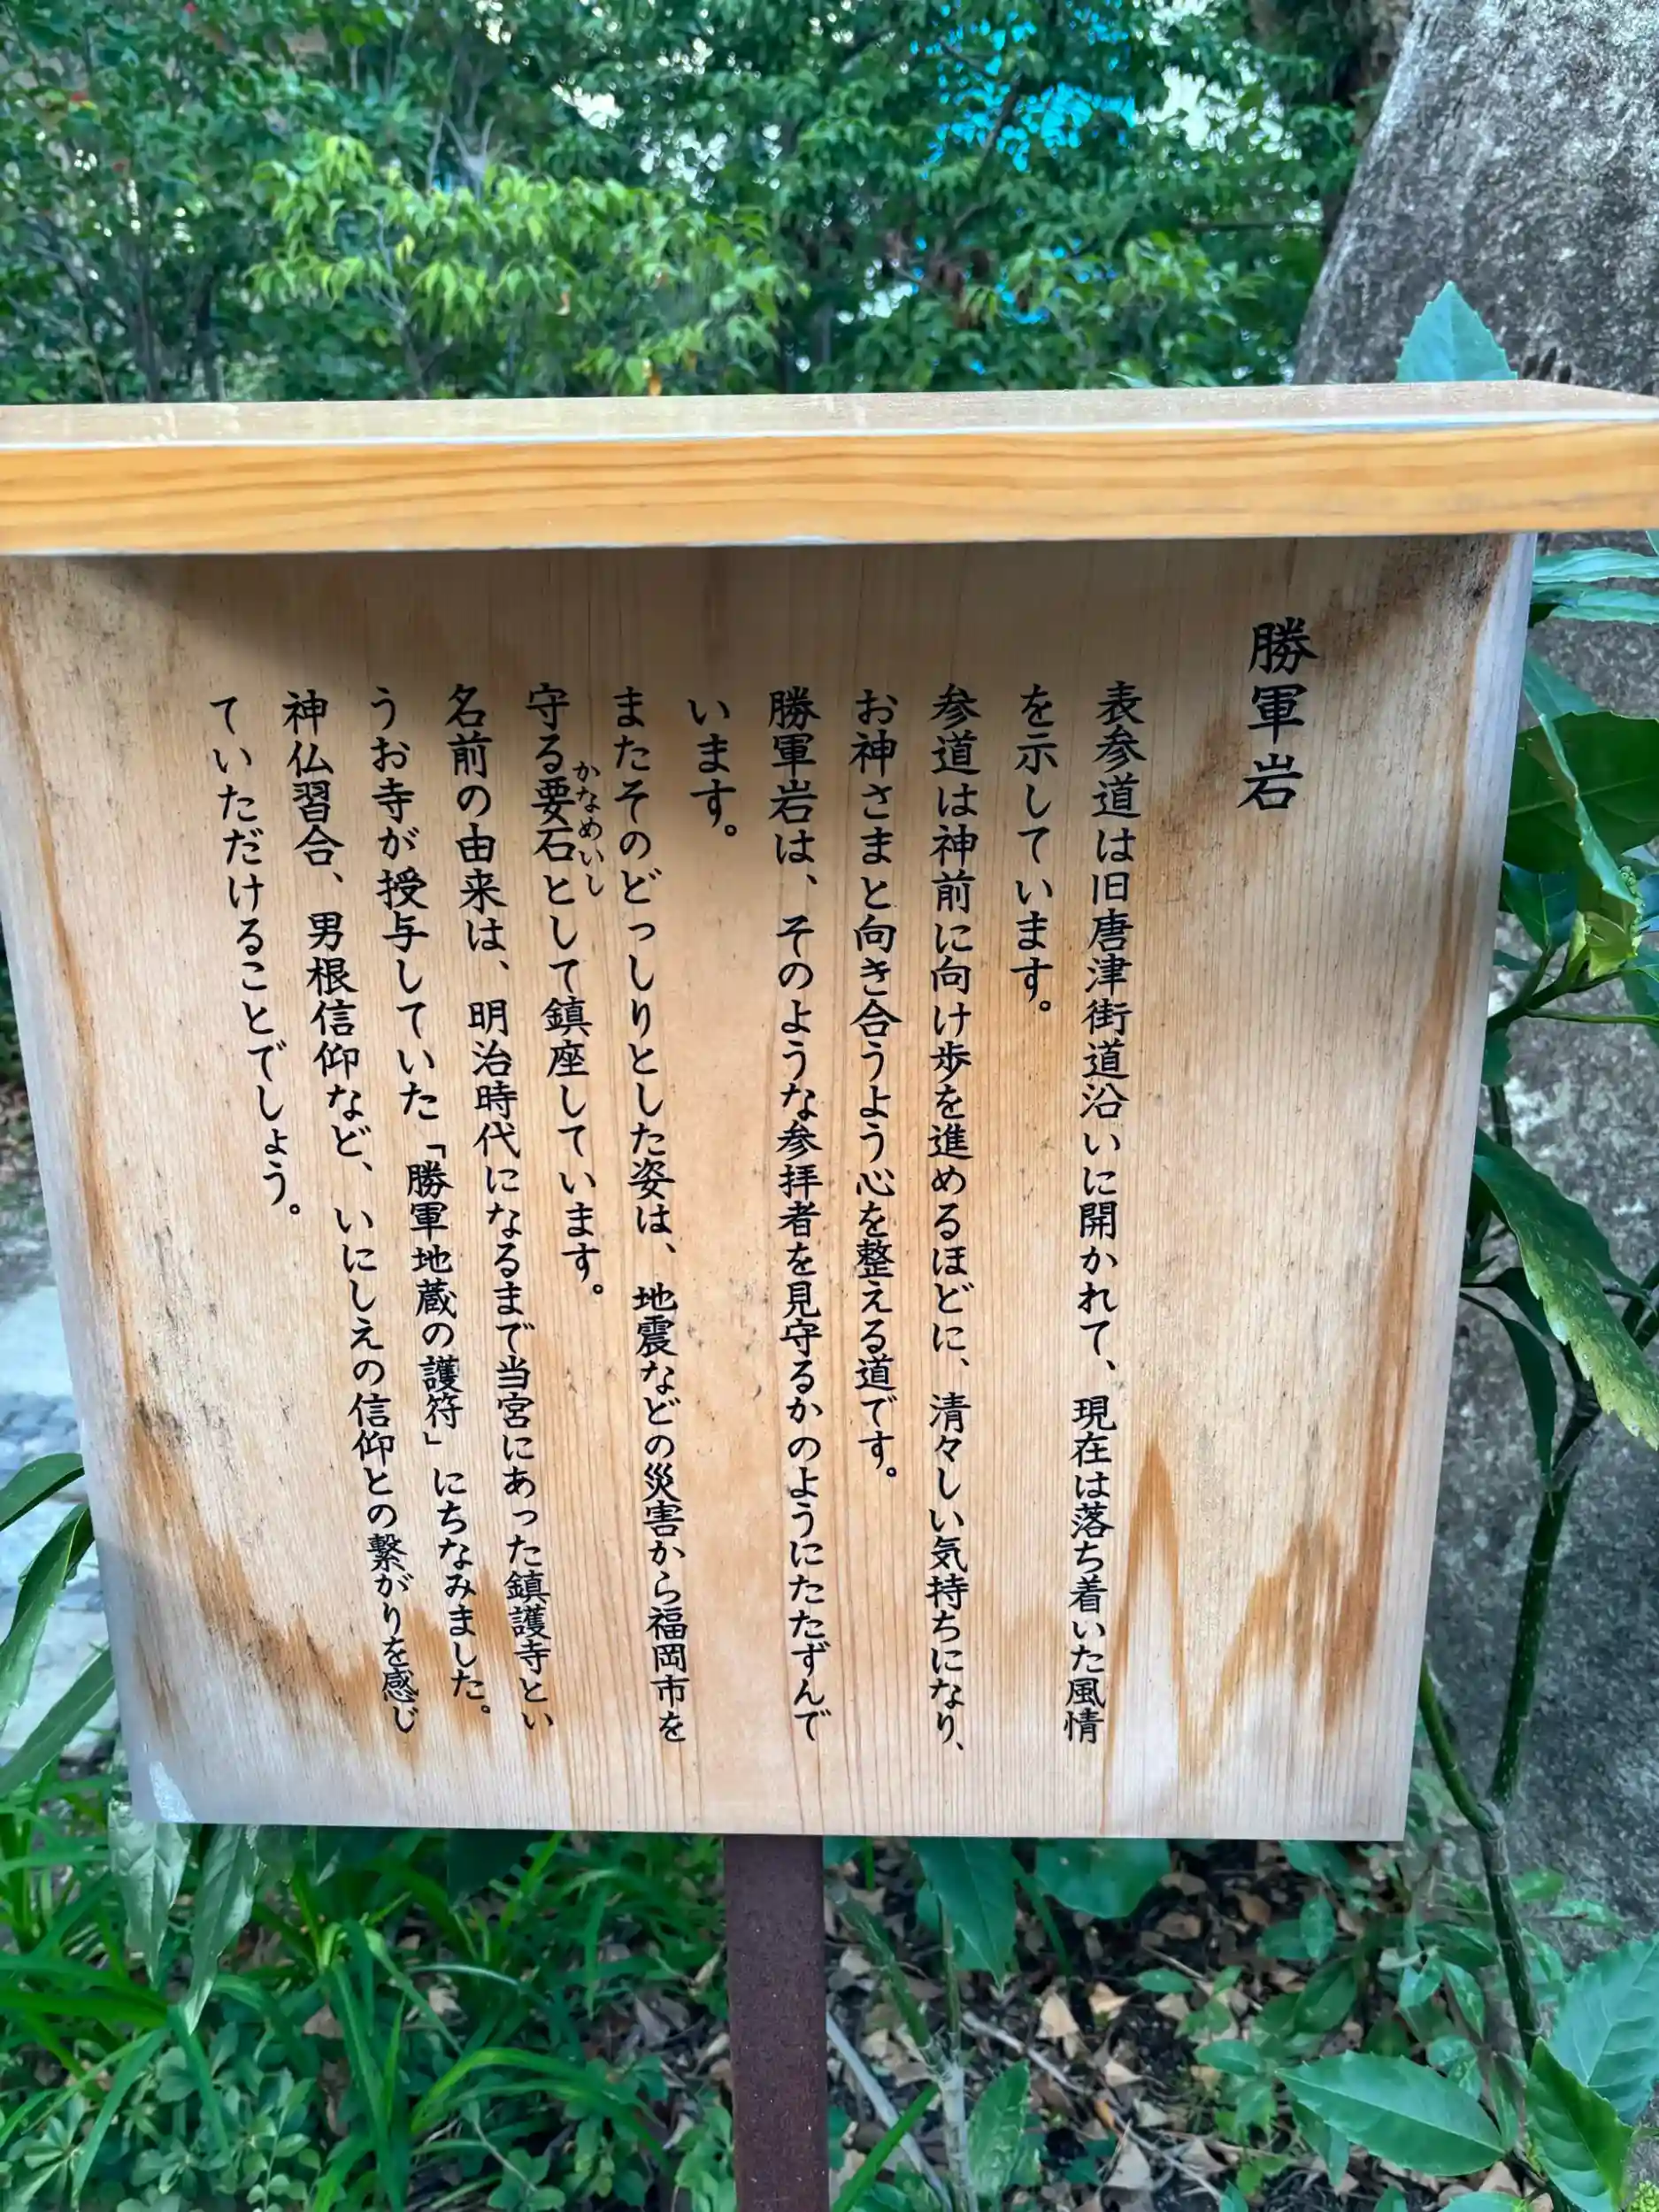 勝軍岩
表参道は旧唐津街道沿いに開かれて、現在は落ち着いた風情
を示しています。
参道は神前に向け歩を進めるほどに、清々しい気持ちになり、
お神さまと向き合うよう心を整える道です。
勝軍岩は、そのような参拝者を見守るかのようにたたずんで
います。
またそのどっしりとした姿は、地震などの災害から福岡市を
かなめいし
守る要石として鎮座しています。
名前の由来は、明治時代になるまで当宮にあった鎮護寺とい
うお寺が授与していた「勝軍地蔵の護符」にちなみました。
神仏習合、男根信仰など、いにしえの信仰との繋がりを感じ
ていただけることでしょう。